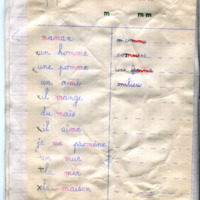 m mm
maman
un homme
une pomme
un ami
il mange
du maïs
il aime
je me promène
un mur
la mer
la maison
milieu